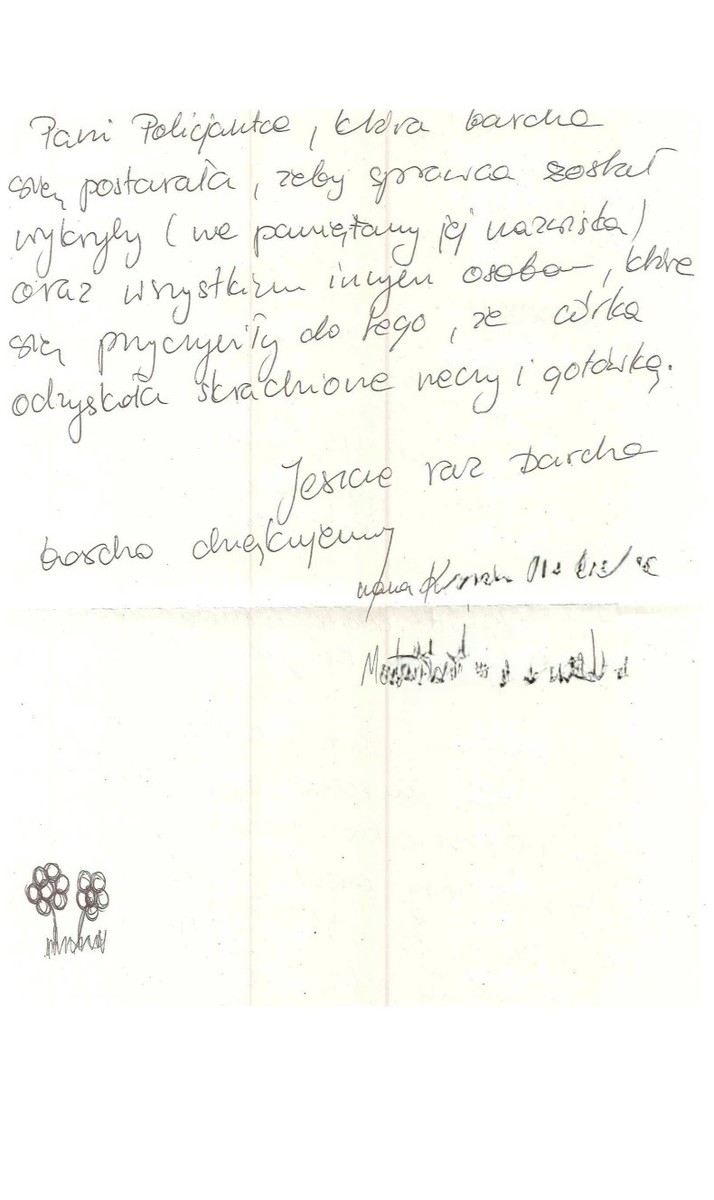 Pani Policjantce, która bardzo
się postarała, żeby sprawca został
wykryty (nie pamiętamy jej nazwiska)
oraz wszystkim innym osobom, które
się przyczyniły do tego, że córka
odzyskała skradzione rzeczy i gotówkę.
Jeszcze raz bardzo
bardzo dziękujemy